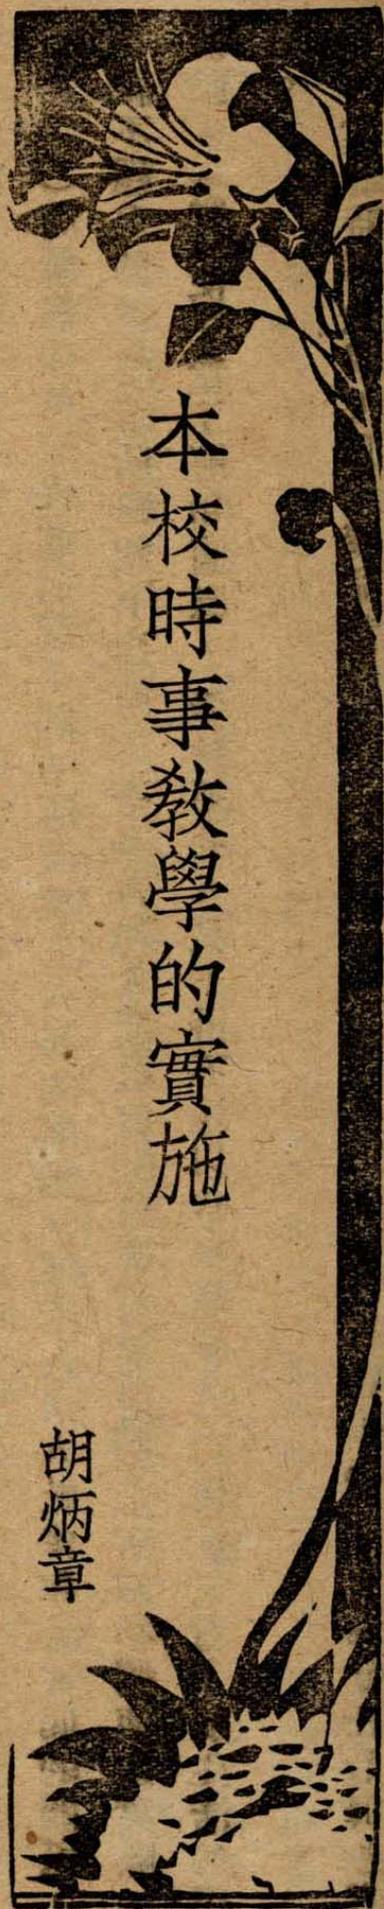 本校時事教學的實施
胡炳章